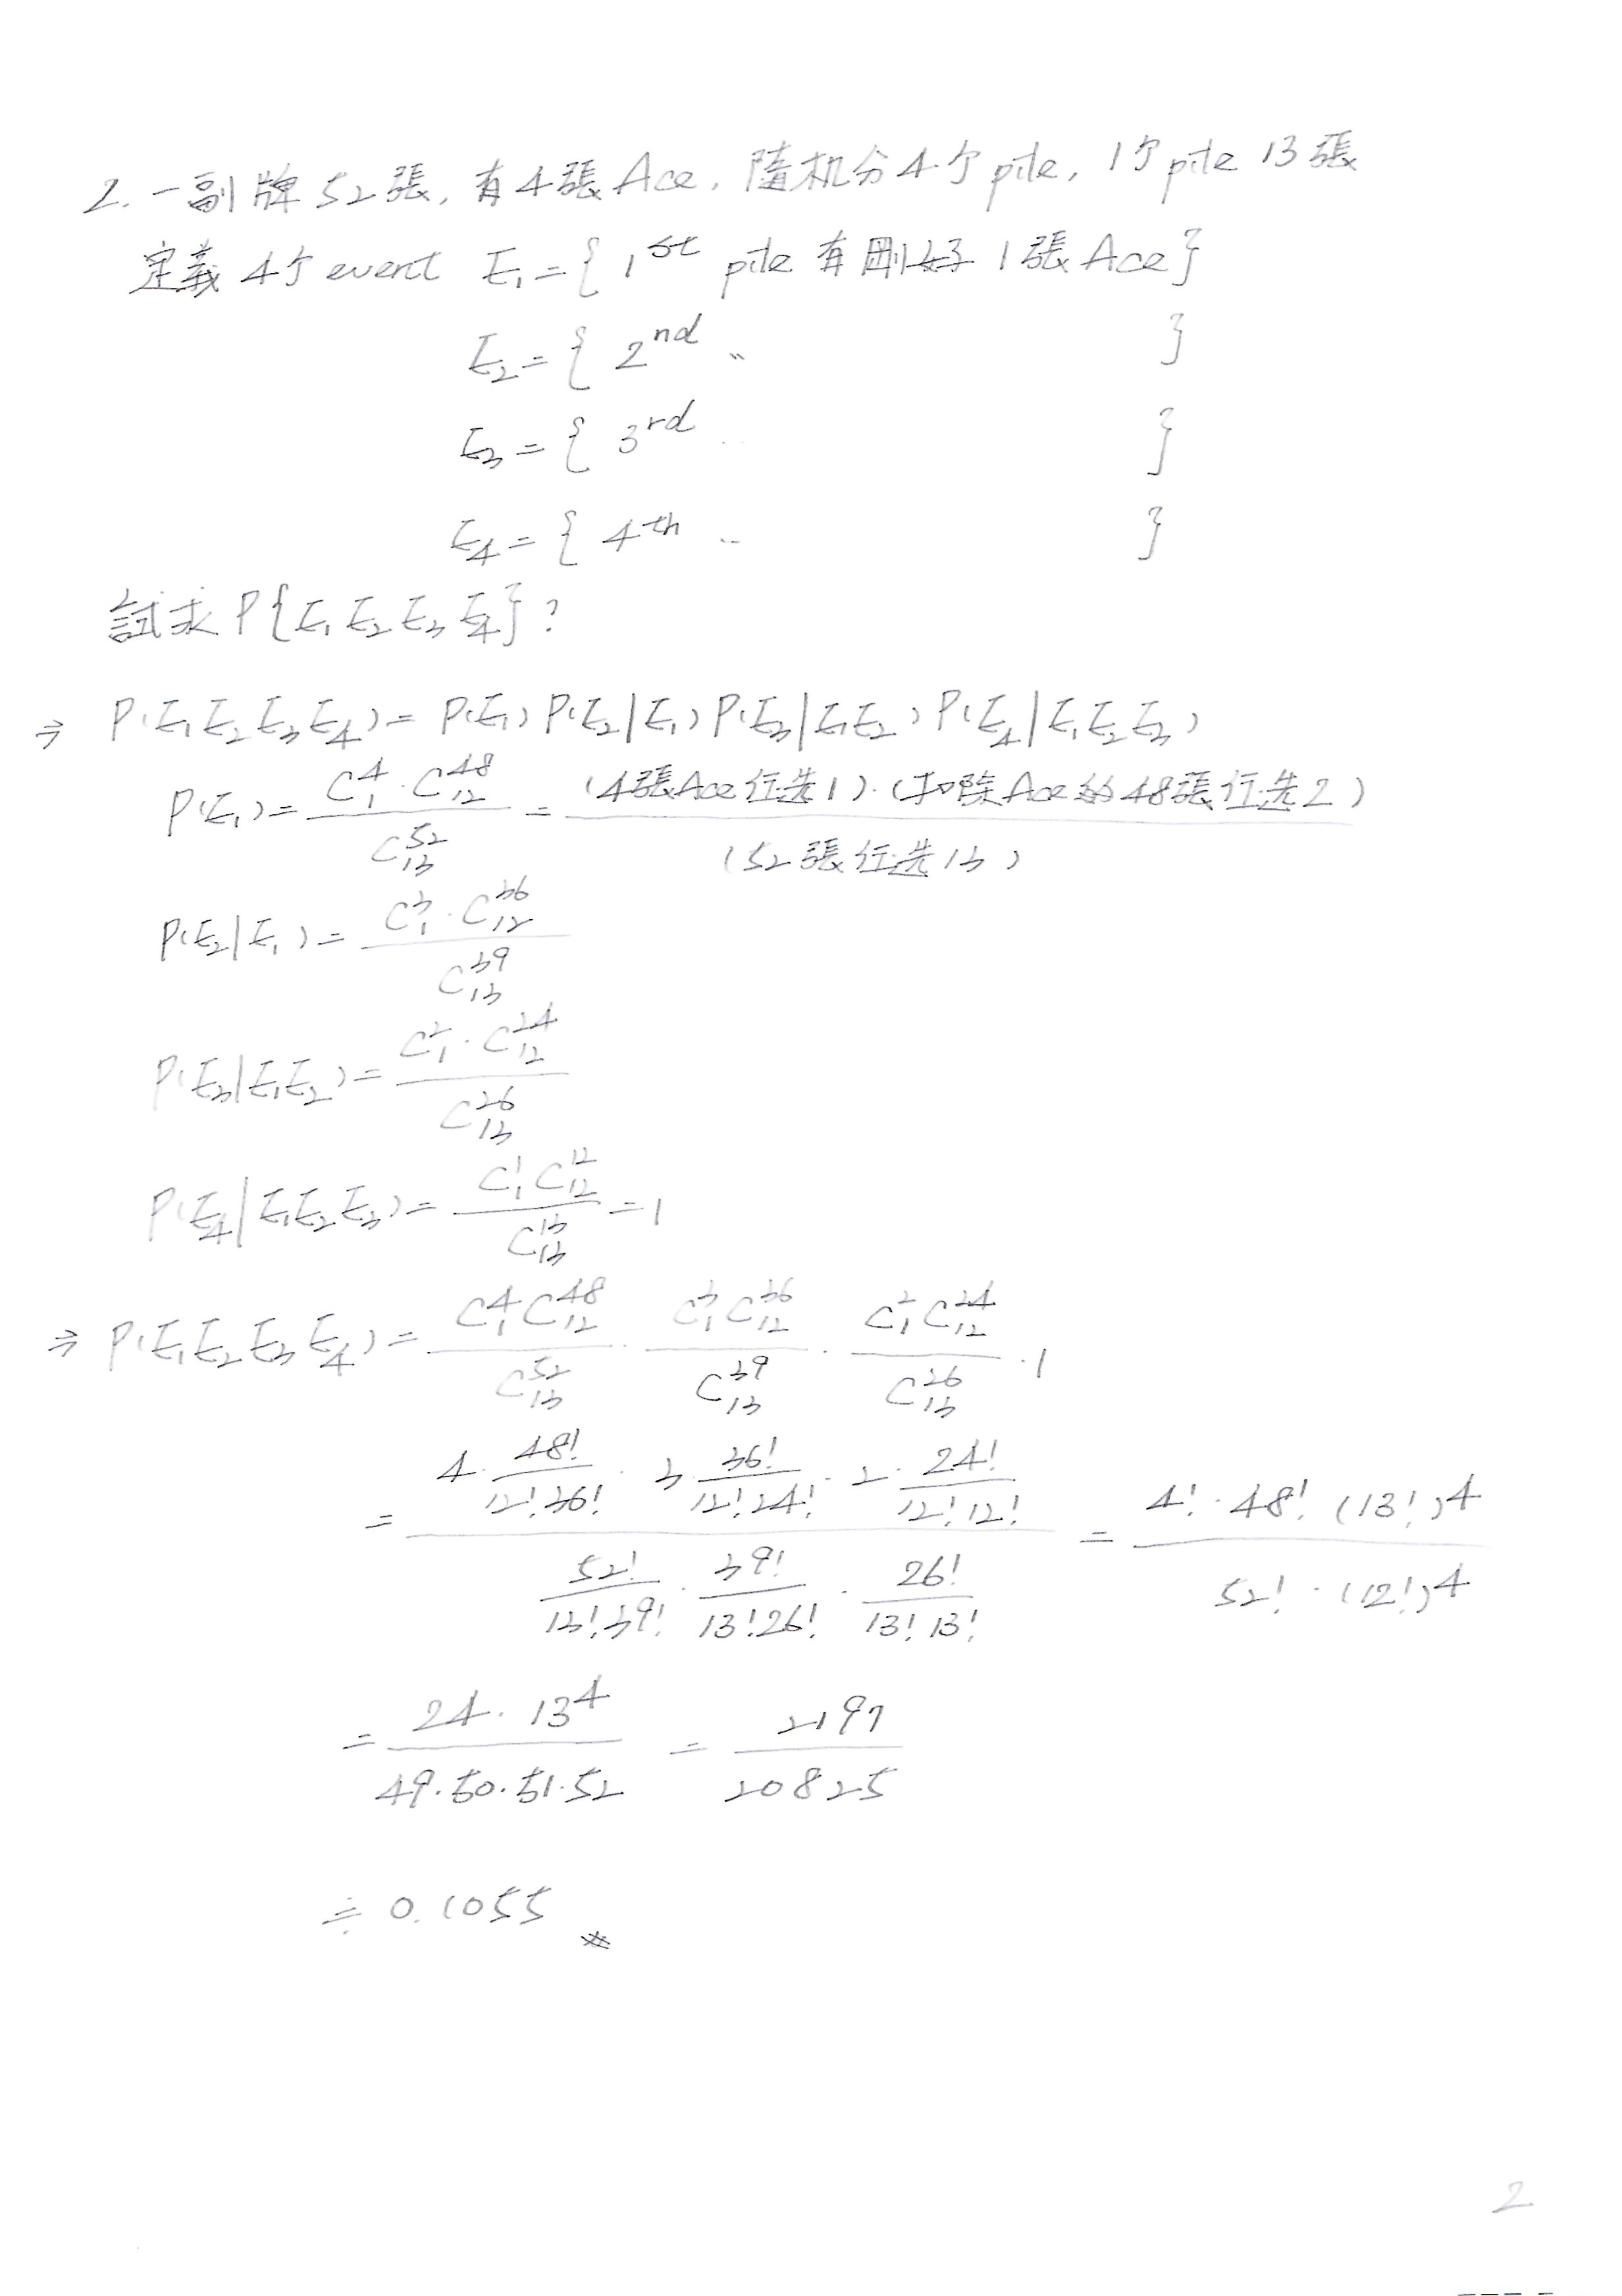 2. 一副牌 52張, 有4張 Ace, 隨机分4个pile, 1个pile 13張
定義 4个 event E₁={ 1ˢᵗ pile 有剛好 1張 Ace}
E₂={ 2ⁿᵈ 〃 }
E₃={ 3ʳᵈ 〃 }
E₄={ 4ᵗʰ 〃 }
試求 P{E₁E₂E₃E₄}?
⇒ P(E₁E₂E₃E₄)= P(E₁)P(E₂|E₁)P(E₃|E₁E₂)P(E₄|E₁E₂E₃)
P(E₁)= \frac{C^4_1·C^{48}_{12}}{C^{52}_{13}} = \frac{(4張Ace任选1)·(扣除Ace的48張任选2)}{(52張任选13)}
P(E₂|E₁)= \frac{C^3_1·C^{36}_{12}}{C^{39}_{13}}
P(E₃|E₁E₂)= \frac{C^2_1·C^{24}_{12}}{C^{26}_{13}}
P(E₄|E₁E₂E₃)= \frac{C^1_1 C^{12}_{12}}{C^{13}_{13}} =1
⇒ P(E₁E₂E₃E₄)= \frac{C^4_1 C^{48}_{12}}{C^{52}_{13}} · \frac{C^3_1 C^{36}_{12}}{C^{39}_{13}} · \frac{C^2_1 C^{24}_{12}}{C^{26}_{13}} ·1
= \frac{4·\frac{48!}{12!36!}·3·\frac{36!}{12!24!}·2·\frac{24!}{12!12!}}{\frac{52!}{13!39!}·\frac{39!}{13!26!}·\frac{26!}{13!13!}} = \frac{4!·48!(13!)^4}{52!·(12!)^4}
= \frac{24·13^4}{49·50·51·52} = \frac{2197}{20825}
≑ 0.1055 ※
2